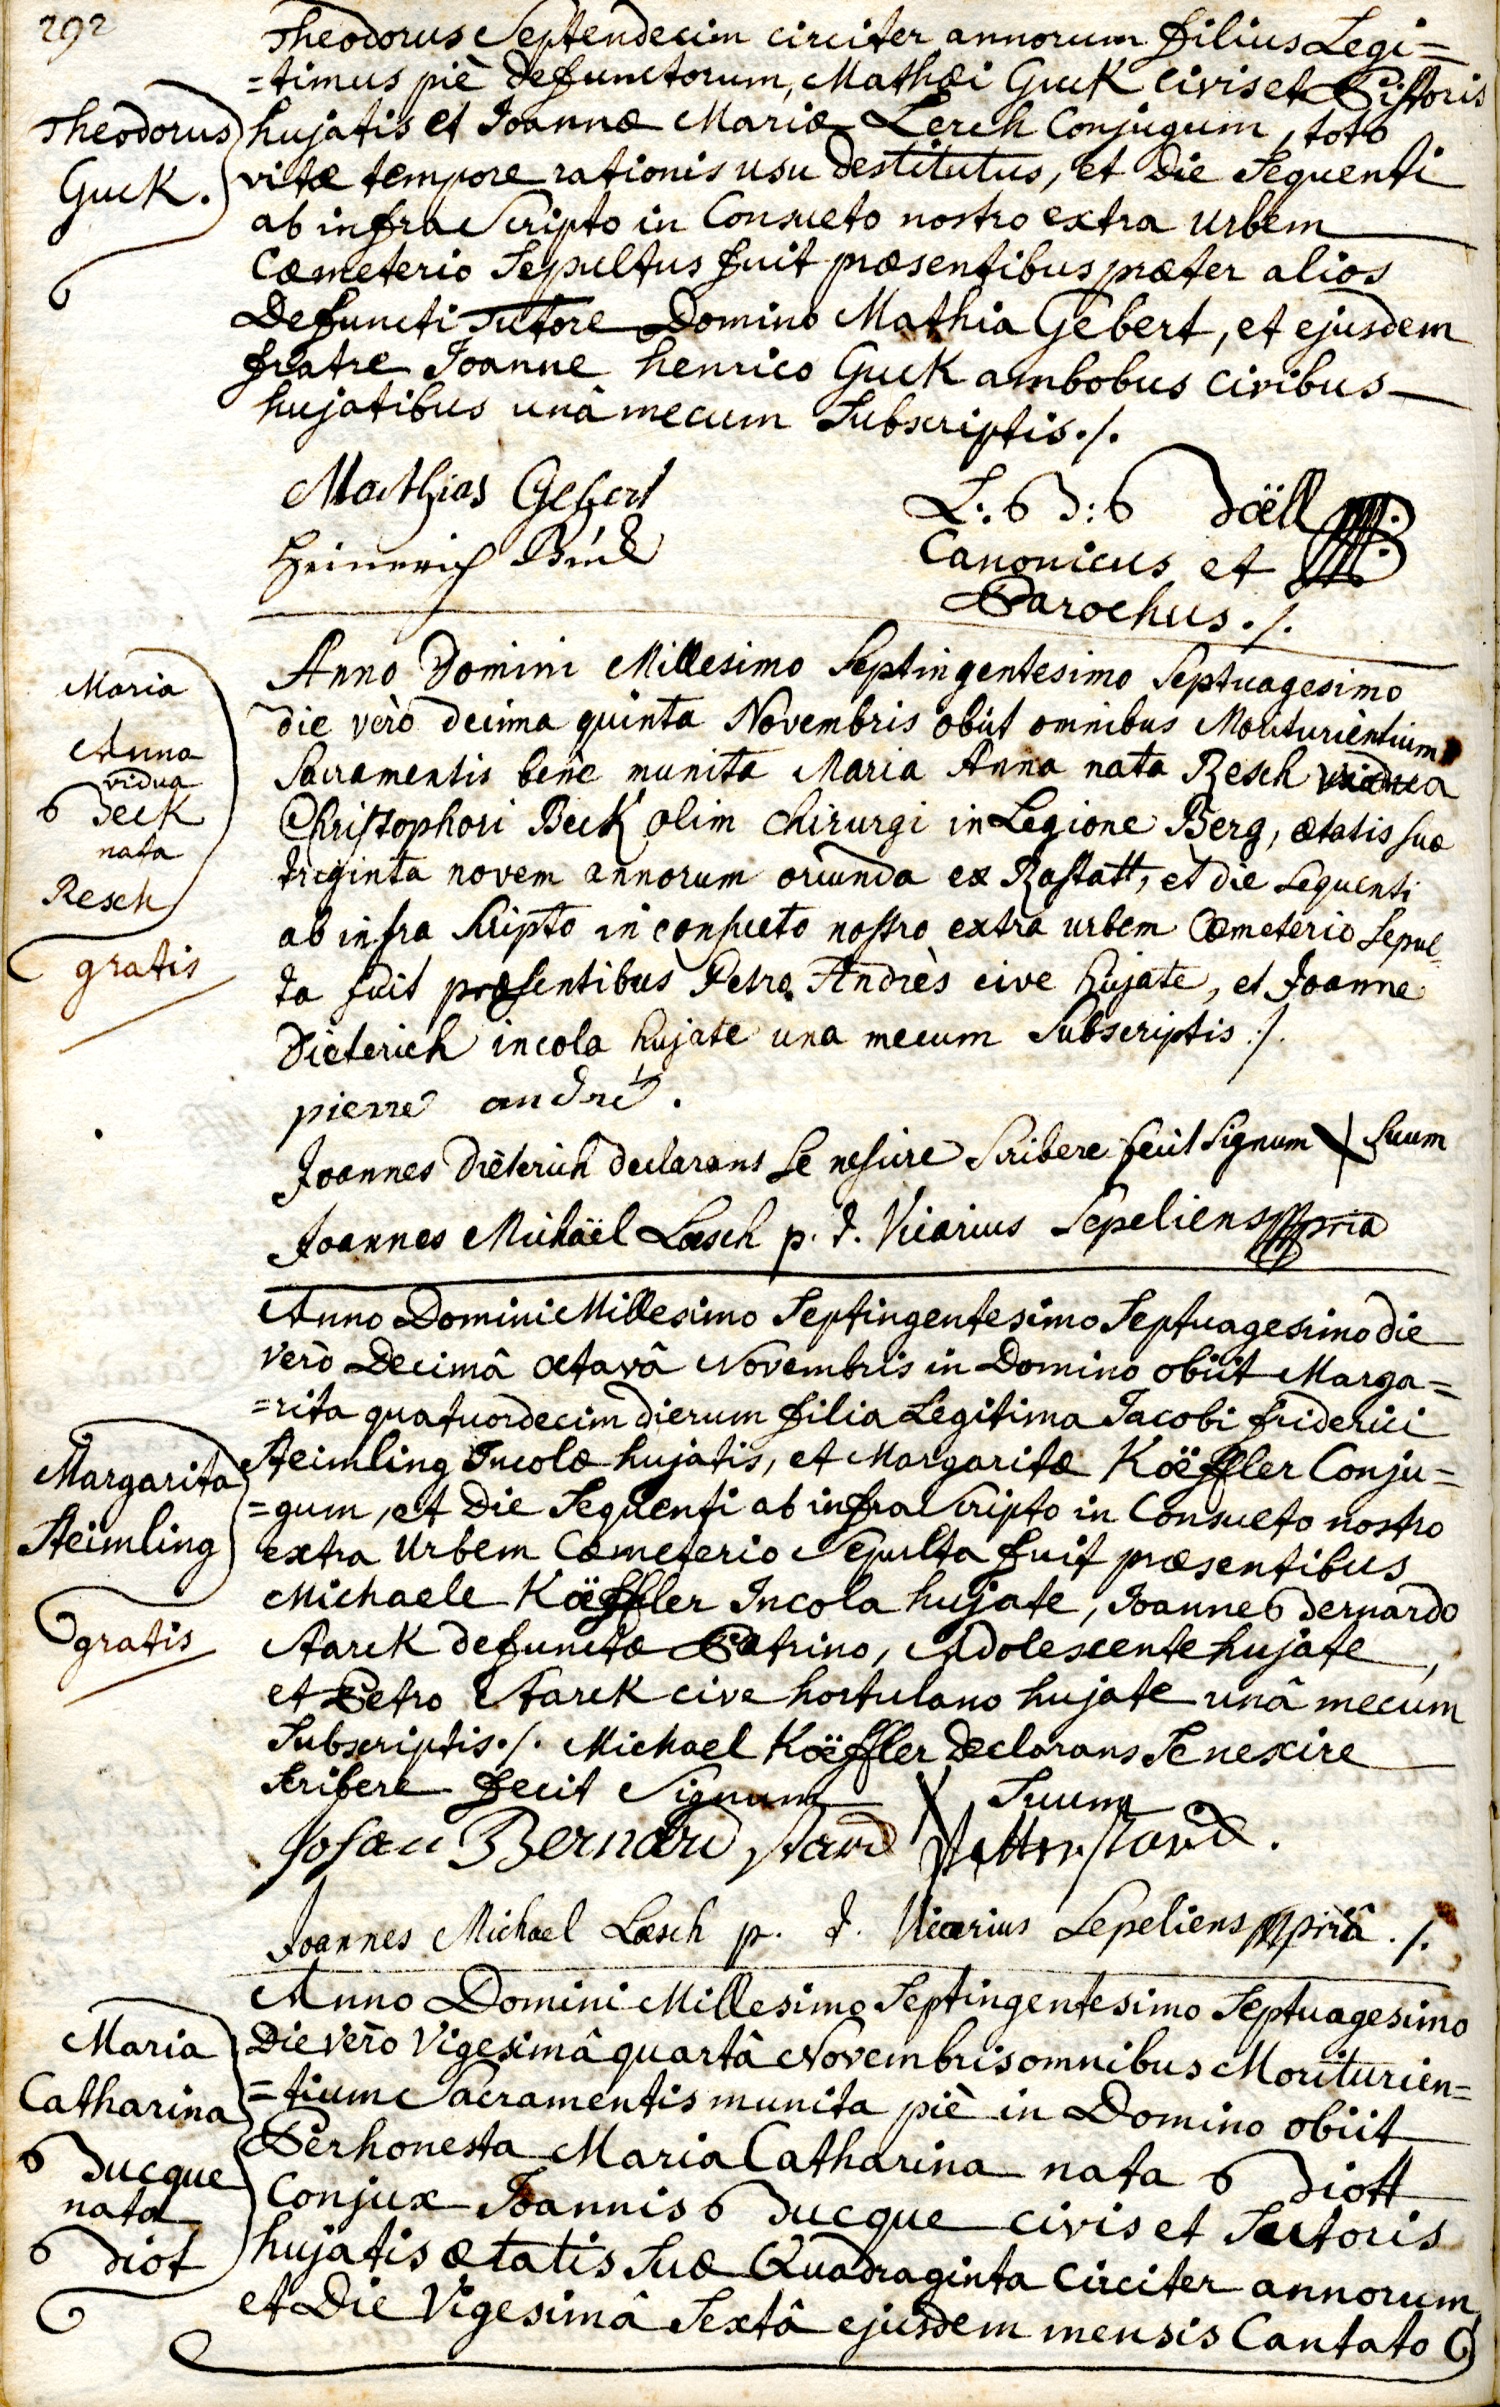 292
Theodorus Septendecim circiter annorum filius Legi=
=timus piè defunctorum, Mathæi Guck civis et Pistoris
Theodorus
Guck.
hujatis et Joannæ Mariæ Lerch Conjugum, toto
vitæ tempore rationis usu destitutus, et die Sequenti
ab infra Scripto in Consueto nostro extra Urbem
Cœmeterio Sepultus fuit præsentibus præter alios
Defuncti Tutore Domino Mathia Gebert, et ejusdem
fratre Joanne henrico Guck ambobus civibus
hujatibus unà mecum Subscriptis ./.
Mathias Gebert
Heinerich
L: B: Böell
Canonicus et
Parochus ./.
Maria
Anna
vidua
Beck
nata
Resch
gratis
Anno Domini Millesimo Septingentesimo Septuagesimo
die verò decima quinta Novembris obiit omnibus Moriturientium
Sacramentis benè munita Maria Anna nata Resch vidua
Christophori Beck olim chirurgi in Legione Berg, ætatis suæ
triginta novem annorum oriunda ex Rastatt, et die sequenti
ab infra scripto in consueto nostro extra urbem Cœmeterio Sepul=
ta fuit præsentibus Petro Andrès cive hujate, et Joanne
Dieterich incola hujate una mecum Subscriptis ./.
pierre andré.
Joannes Dieterich declarans se nescire scribere fecit signum X suum
Joannes Michäel Lœsch p. t. Vicarius Sepeliens mppria
Margarita
Steimling
gratis
Anno Domini Millesimo Septingentesimo Septuagesimo die
verò Decimâ octavâ Novembris in Domino obiit Marga=
=rita quatuordecim dierum filia Legitima Jacobi friderici
Steimling Incolæ hujatis, et Margaritæ Köeffler Conju=
=gum, et Die Sequenti ab infra Scripto in Consueto nostro
extra Urbem Cœmeterio Sepulta fuit præsentibus
Michaele Köeffler Incola hujate, Joanne Bernardo
Starck defunctæ Patrino, Adolescente hujate,
et Petro Starck cive hortulano hujate unâ mecum
Subscriptis ./. Michael Köeffler declarans Se nescire
scribere fecit Signum X Suum
Johan Bernard Starck Petter Starck.
Joannes Michael Lœsch p. t. Vicarius Sepeliens mppriâ ./.
Maria
Catharina
Bucque
nata
Biot
Anno Domini Millesimo Septingentesimo Septuagesimo
Die verò Vigesimâ quartâ Novembris omnibus Moriturien=
=tium Sacramentis munita piè in Domino obiit
Perhonesta Maria Catharina nata Biott
Conjux Joannis Bucque civis et Sutoris
hujatis ætatis Suæ Quadraginta circiter annorum,
et Die Vigesimâ Sextâ ejusdem mensis Cantato